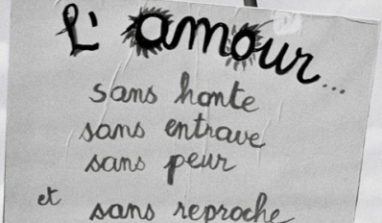 L'amour...
sans honte
sans entrave
sans peur
et sans reproche